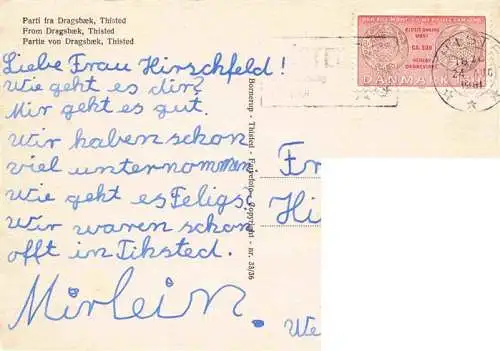 Parti fra Dragsbæk, Thisted
From Dragsbæk, Thisted
Partie von Dragsbæk, Thisted
Liebe Frau Hirschfeld!
Wie geht es dir?
Mir geht es gut.
Wir haben schon
viel unternommen.
Wie geht es Feligs.
Wir waren schon
offt in Tiksted.
Mirlein.
Bornerup - Thisted - Copyright - nr. 33/36
Fr
Hi
We
DANMARK